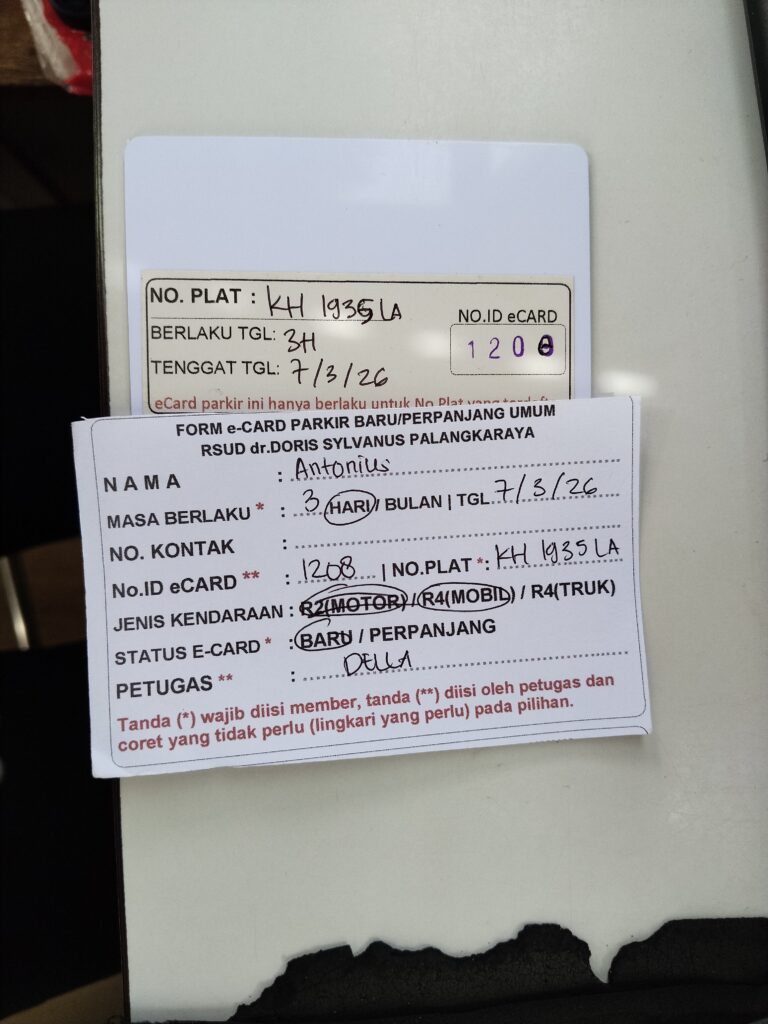 NO. PLAT : KH 1935 LA
NO.ID eCARD
BERLAKU TGL: 3H
1208
TENGGAT TGL: 7/3/26
eCard parkir ini hanya berlaku untuk No Plat yang
FORM e-CARD PARKIR BARU/PERPANJANG UMUM
RSUD dr.DORIS SYLVANUS PALANGKARAYA
NAMA : Antonius
MASA BERLAKU * : 3 HARI / BULAN | TGL 7/3/26
NO. KONTAK :
No.ID eCARD ** : 1208 | NO.PLAT *: KH 1935 LA
JENIS KENDARAAN : R2(MOTOR) / R4(MOBIL) / R4(TRUK)
STATUS E-CARD * : BARU / PERPANJANG
PETUGAS ** : DELLA
Tanda (*) wajib diisi member, tanda (**) diisi oleh petugas dan
coret yang tidak perlu (lingkari yang perlu) pada pilihan.